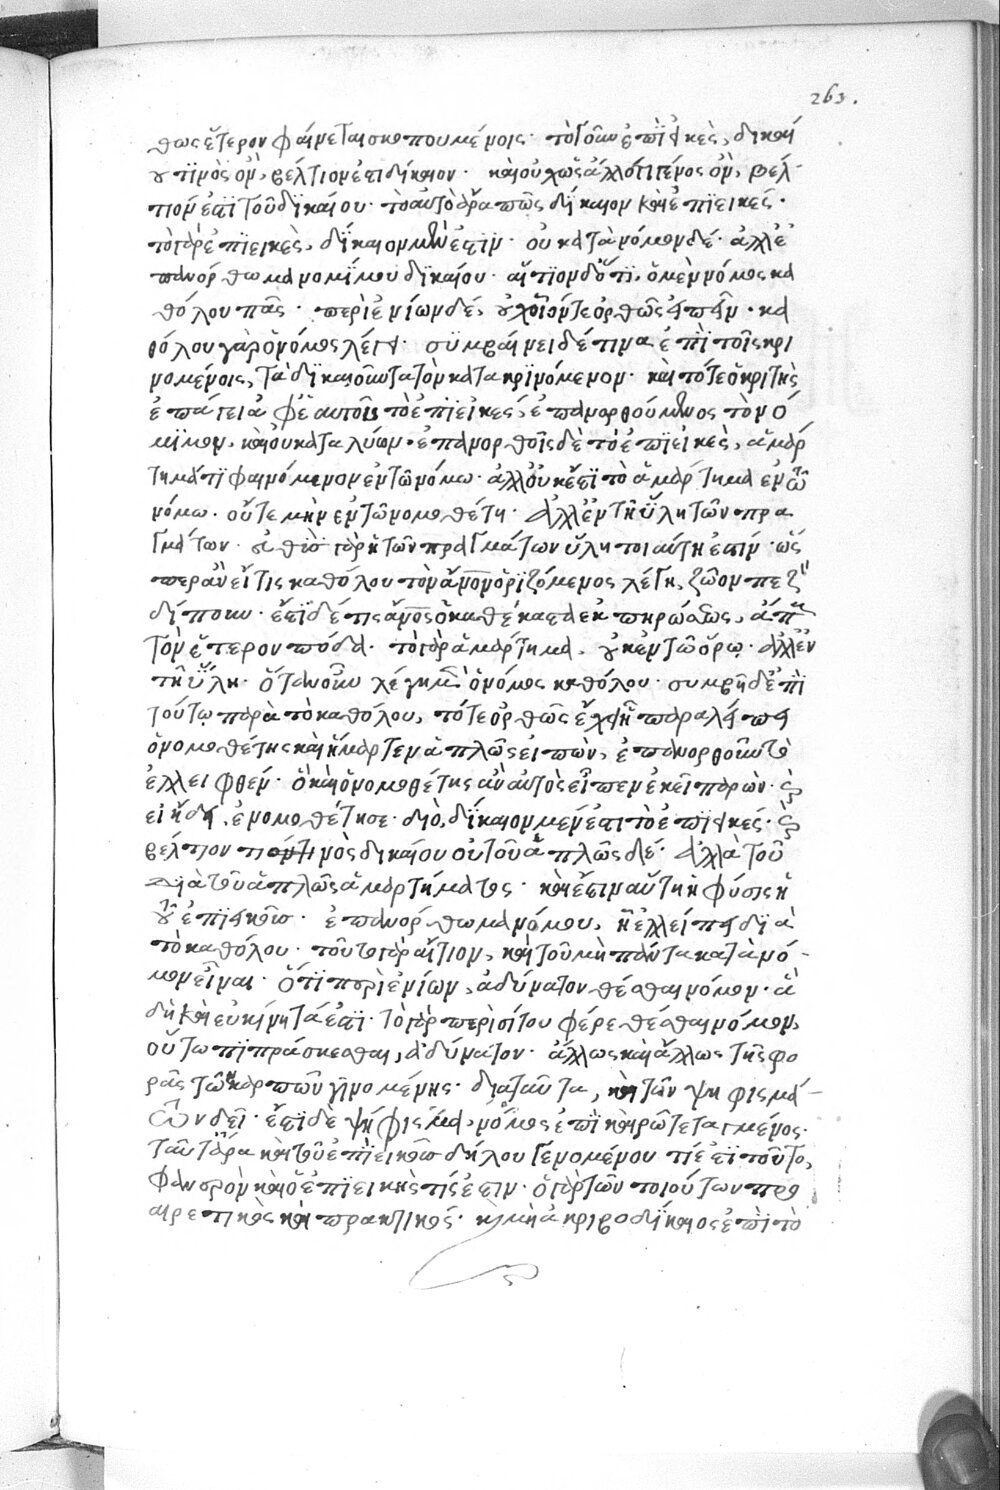 263.
θως ἕτερον φαίνεται σκοπουμένοις· τὸ γοῦν ἐπιεικὲς, δικαί
ου τινὸς ὂν, βέλτιον ἐστι δίκαιον· καὶ οὐχ ὡς ἄλλό τι γένος ὂν, βέλ-
τιον ἐστὶ τοῦ δικαίου· τὸ αὐτὸ ἄρα πῶς δίκαιον καὶ ἐπιεικές·
τὸ γὰρ ἐπιεικὲς, δίκαιον μέν ἐστιν· οὐ κατὰ νόμον δέ· ἀλλ' ἐ
πανόρθωμα νομίμου δικαίου· αἴτιον δ' ὅτι, ὁ μὲν νόμος κα
θόλου πᾶς· περὶ ἐνίων δέ, οὐχ οἷόν τε ὀρθῶς εἰπεῖν· κα
θόλου γὰρ ὁ νόμος λέγει· συμβαίνει δέ τινα ἐπὶ τοῖς κρι
νομένοις, τὰ δίκαια οὐ κατὰ τὸν κατακρινόμενον· καὶ τότε ὁ κριτὴς
ἐπάγει ἀφ' ἑαυτοῦ τὸ ἐπιεικές, ἐπανορθούμενος τὸν ό
μιμον, καὶ οὐ καταλύων· ἐπανορθοῖ δὲ τὸ ἐπιεικὲς, ἁμάρ
τημά τι φαινόμενον ἐν τῷ νόμῳ· ἀλλ' οὐκ ἔστι τὸ ἁμάρτημα ἐν τῷ
νόμῳ· οὔτε μὴν ἐν τῷ νομοθέτῃ· ἀλλ' ἐν τῇ ὕλῃ τῶν πρα
γμάτων· εὐθὺς γὰρ ἡ τῶν πραγμάτων ὕλη τοιαύτη ἐστίν· ὥς
περ ἂν εἴ τις καθόλου τὸν ἄνον ὁριζόμενος λέγῃ, ζῶον πεζὸν
δίπουν· ἔστι δέ τις ἄνος ὁ καθέκαστα ἐκ πηρώσεως,
τὸν ἕτερον πόδα· τὸ γὰρ ἁμάρτημα, οὐκ ἐν τῷ ὅρῳ· ἀλλ' ἐν
τῇ ὕλῃ· ὅταν οὖν λέγῃ μὲν ὁ νόμος καθόλου· συμβῇ δ' ἐπὶ
τούτῳ παρὰ τὸ καθόλου, τότε ὀρθῶς ἔχει ᾗ παραλείπει
ὁ νομοθέτης καὶ ἥμαρτεν ἁπλῶς εἰπὼν, ἐπανορθοῦν τὸ
ἐλλειφθέν· ὃ καὶ ὁ νομοθέτης ἂν αὐτὸς εἶπεν ἐκεῖ παρὼν· καὶ
εἰ ᾔδει, ἐνομοθέτησε· διὸ, δίκαιον μέν ἐστι τὸ ἐπιεικές· καὶ
βέλτιον τινὸς δικαίου οὐ τοῦ ἁπλῶς δέ· ἀλλὰ τοῦ
διὰ τοῦ ἁπλῶς ἁμαρτήματος· καὶ ἔστιν αὕτη ἡ φύσις ἡ
τοῦ ἐπιεικοῦς· ἐπανόρθωμα νόμου, ᾗ ἐλλείπει διὰ
τὸ καθόλου· τοῦτο γὰρ αἴτιον, καὶ τοῦ μὴ πάντα κατὰ νό-
μον εἶναι· ὅτι περὶ ἐνίων, ἀδύνατον θέσθαι νόμον· ἃ
δὴ καὶ εὐκίνητά ἐστι· τὸ γὰρ περὶ σίτου φέρε θέσθαι νόμον,
οὕτω πιπράσκεσθαι, ἀδύνατον· ἄλλως καὶ ἄλλως τῆς φο
ρᾶς τῶν καρπῶν γινομένης· διὰ ταῦτα, καὶ τῶν ψηφισμά-
των δεῖ· ἔστι δὲ ψήφισμα, νόμος ἐπὶ καιρῷ τεταγμένος·
ταῦτ' ἄρα καὶ τοῦ ἐπιεικοῦς δήλου γενομένου τί ἐστι τοῦτο,
φανερὸν καὶ ὁ ἐπιεικὴς τίς ἐστιν· ὁ γὰρ τῶν τοιούτων προ
αιρετικὸς καὶ πρακτικός· καὶ μὴ ἀκριβοδίκαιος ἐπὶ τὸ